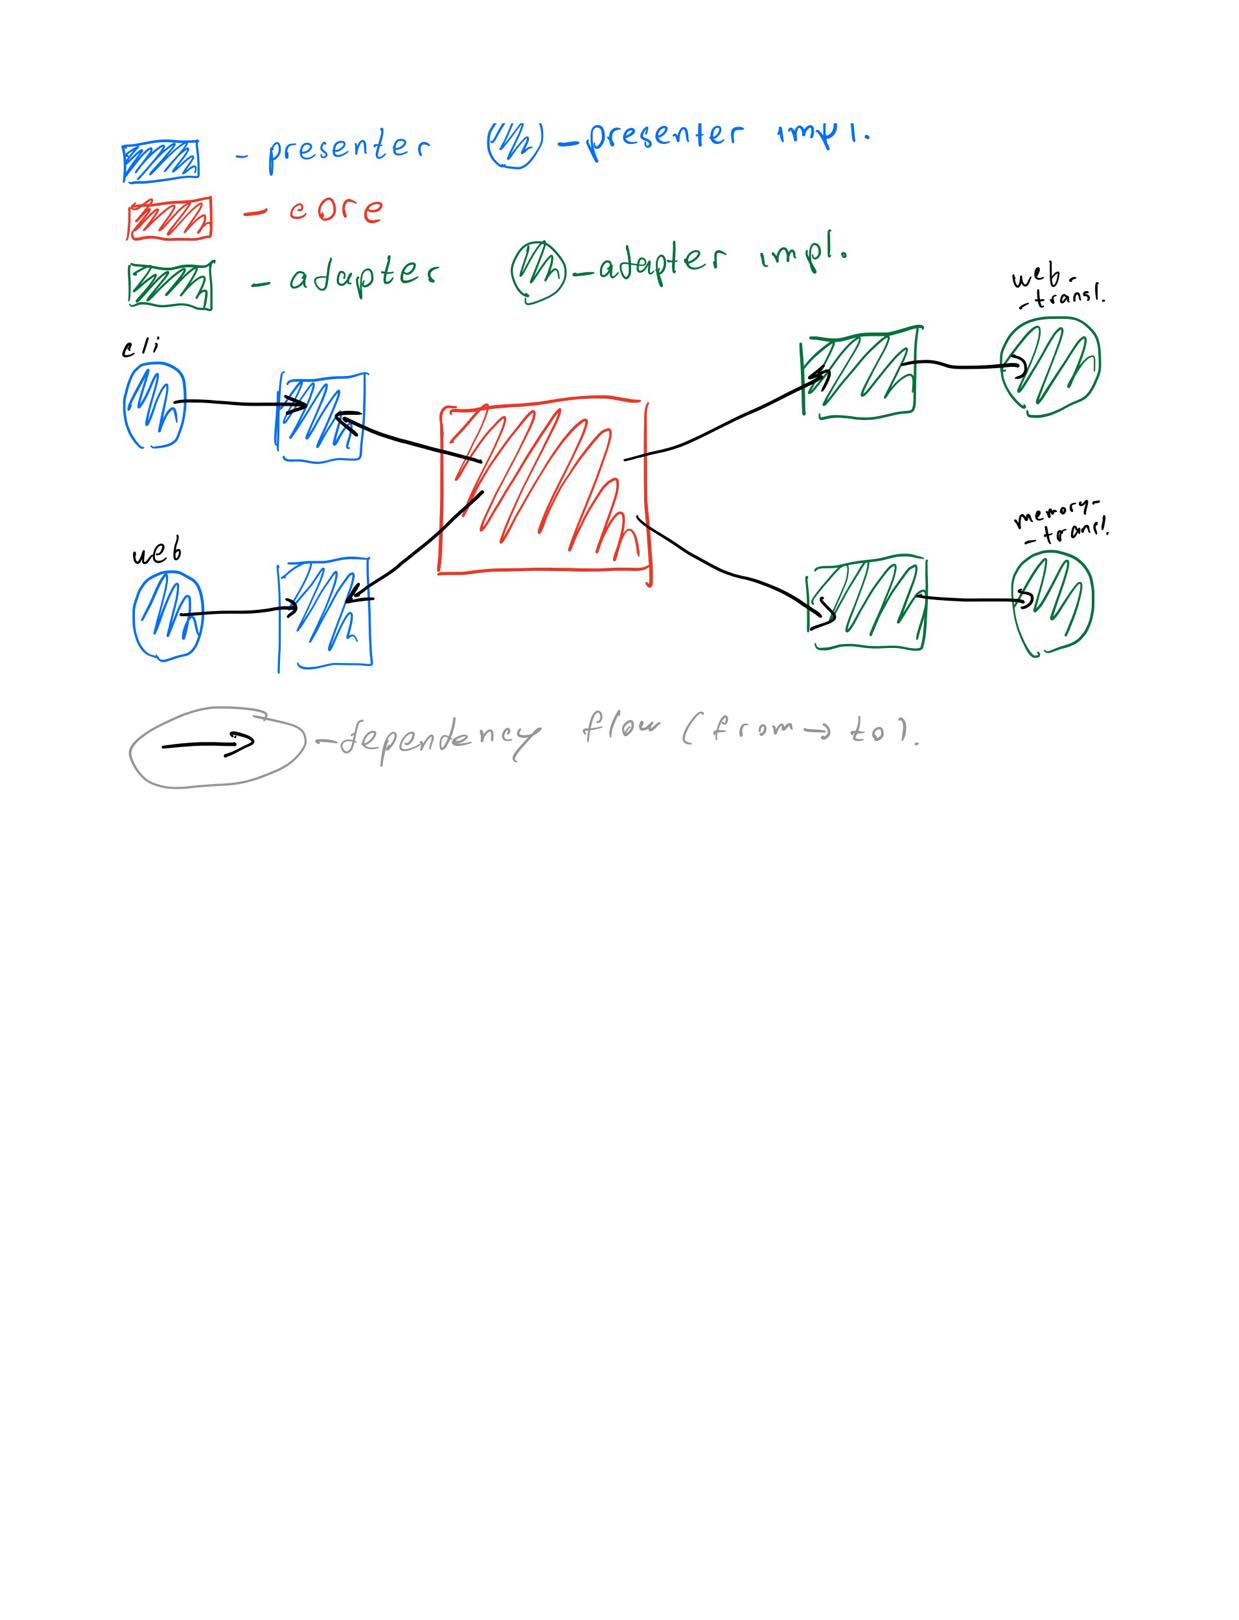 - presenter
- presenter impl.
- core
- adapter
- adapter impl.
web-
- transl.
cli
memory-
- transl.
web
- dependency flow (from → to).